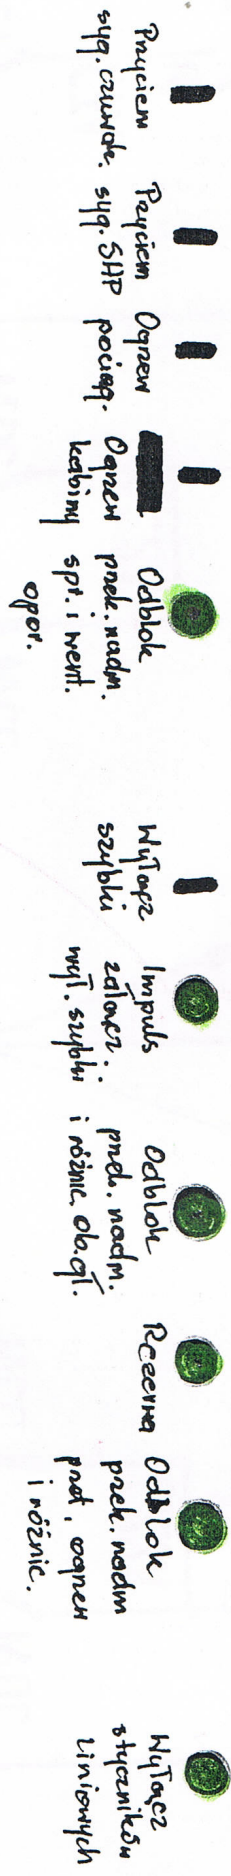 Przyciem
syg. czuwak.
Przyciem
syg. SHP
Ogrzew
pociąg.
Ogrzew
kabiny
Odblok
przek. nadm.
spr. i went.
opor.
Wyłącz
szybki
Impuls
załącz.
wył. szybki
Odblok
przek. nadm.
i różnic. ob. gł.
Rezerwa
Odblok
przek. nadm
przet. ogrzew
i różnic.
Wyłącz
styczników
liniowych